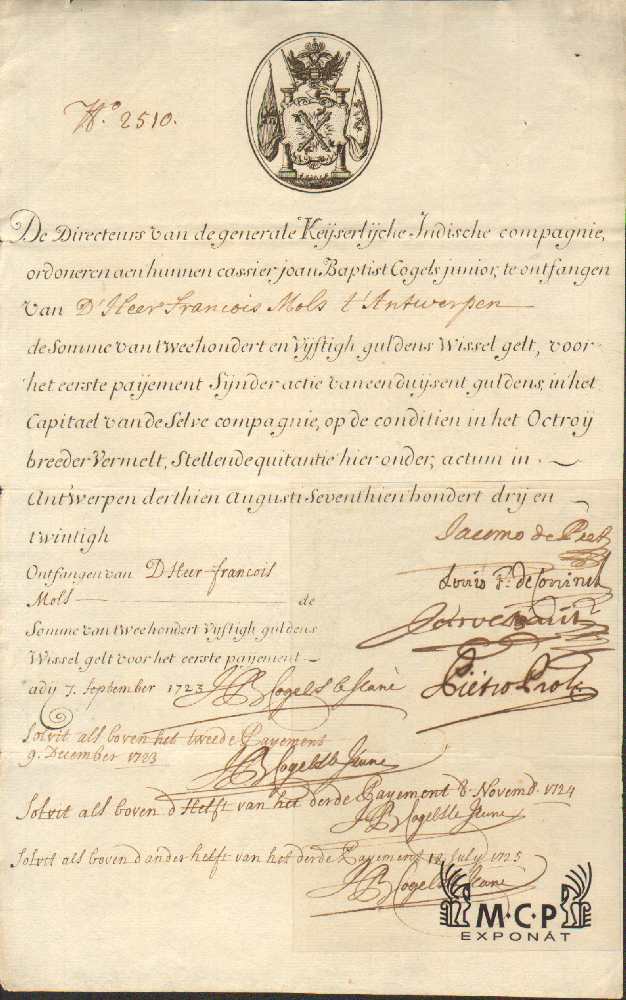 No. 2510.
De Directeurs van de generale Keijserlijcke Indische compagnie,
ordoneren aen hunnen cassier joan Baptist Cogels junior, te ontfangen
van D'Heer Francois Mols t'Antwerpen
de Somme van tweehondert en Vijftigh guldens Wissel gelt, voor
het eerste paijement Sijnder actie van een duijsent guldens, in het
Capitael van de Selve compagnie, op de conditien in het Octroij
breeder Vermelt, Stellende quitantie hier onder, actum in
Antwerpen derthien Augusti Seventhien hondert drij en
twintigh
Jacomo de Pret
Ontfangen van D Heer francois
Louis
Mols de
Somme van tweehondert Vijftigh guldens
Wissel gelt voor het eerste payement
Pietro Proli
adij 7. September 1723 JB Cogels le Jeune
Solvit als boven het tweede Payement
9. December 1723
JB Cogels le Jeune
Solvit als boven d'Helft van het derde Payement 8 Novemb. 1724
JB Cogels le Jeune
Solvit als boven d'ander helft van het derde Payement 18 July 1725
JB Cogels le Jeune
M·C·P
EXPONÁT